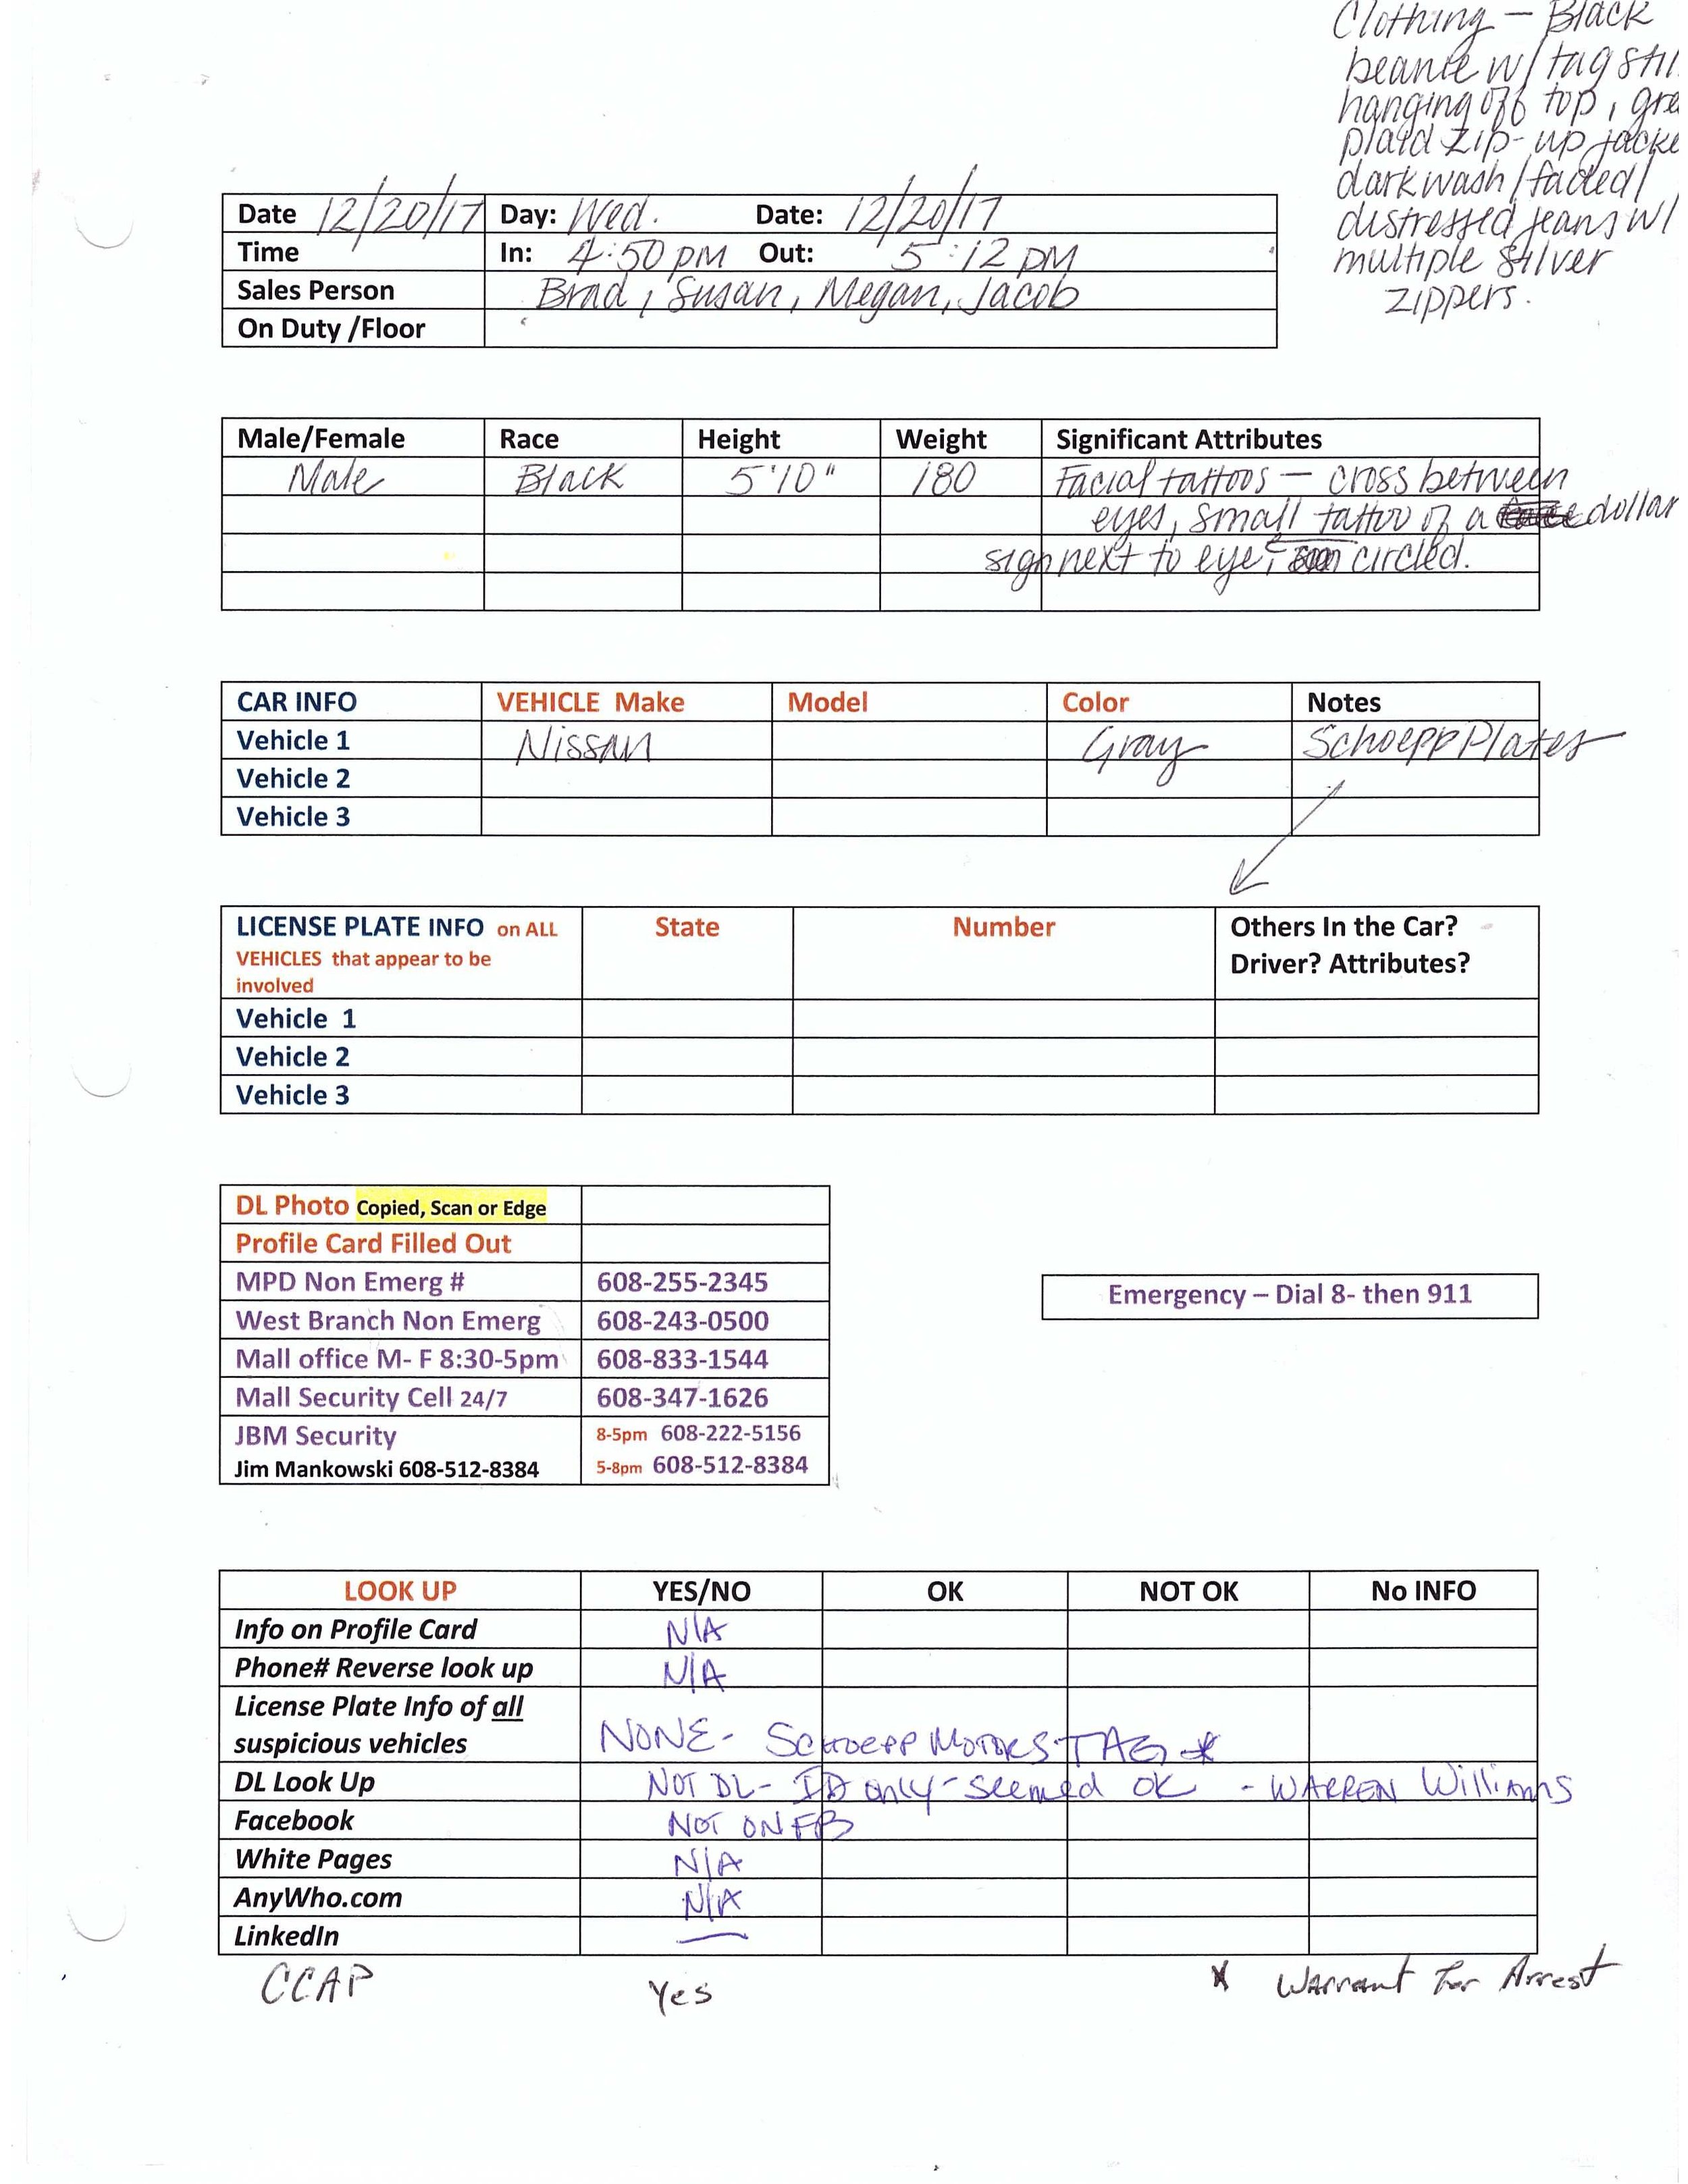 Clothing – Black
beanie w/ tag
hanging off top,
plaid zip-up
dark wash/faded/
distressed jeans w/
multiple silver
zippers.
Date 12/20/17 Day: Wed. Date: 12/20/17
Time In: 4:50 pm Out: 5:12 pm
Sales Person Brad, Susan, Megan, Jacob
On Duty /Floor
Male/Female Race Height Weight Significant Attributes
Male Black 5'10" 180 Facial tattoos – cross between
eyes, small tattoo of a dollar
sign next to eye, circled.
CAR INFO VEHICLE Make Model Color Notes
Vehicle 1 Nissan Gray Schoepp Plates
Vehicle 2
Vehicle 3
LICENSE PLATE INFO on ALL State Number Others In the Car?
VEHICLES that appear to be Driver? Attributes?
involved
Vehicle 1
Vehicle 2
Vehicle 3
DL Photo Copied, Scan or Edge
Profile Card Filled Out
MPD Non Emerg # 608-255-2345
Emergency – Dial 8- then 911
West Branch Non Emerg 608-243-0500
Mall office M- F 8:30-5pm 608-833-1544
Mall Security Cell 24/7 608-347-1626
JBM Security 8-5pm 608-222-5156
Jim Mankowski 608-512-8384 5-8pm 608-512-8384
LOOK UP YES/NO OK NOT OK No INFO
Info on Profile Card N/A
Phone# Reverse look up N/A
License Plate Info of all
suspicious vehicles NONE- SCHOEPP MOTORS TAG *
DL Look Up NOT DL- ID only- seemed OK - WARREN Williams
Facebook NOT ON FB
White Pages N/A
AnyWho.com N/A
LinkedIn —
CCAP Yes * Warrant For Arrest